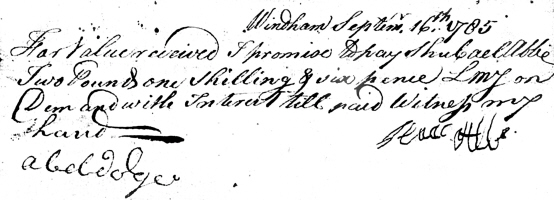 Windham Septemr. 16th. 1785
For Value received I promise to pay Shubael Abbe
Two Pounds one Shilling & six pence Lmy on
Demand with Interest till paid Witness my
hand
Abbe
abel dodge